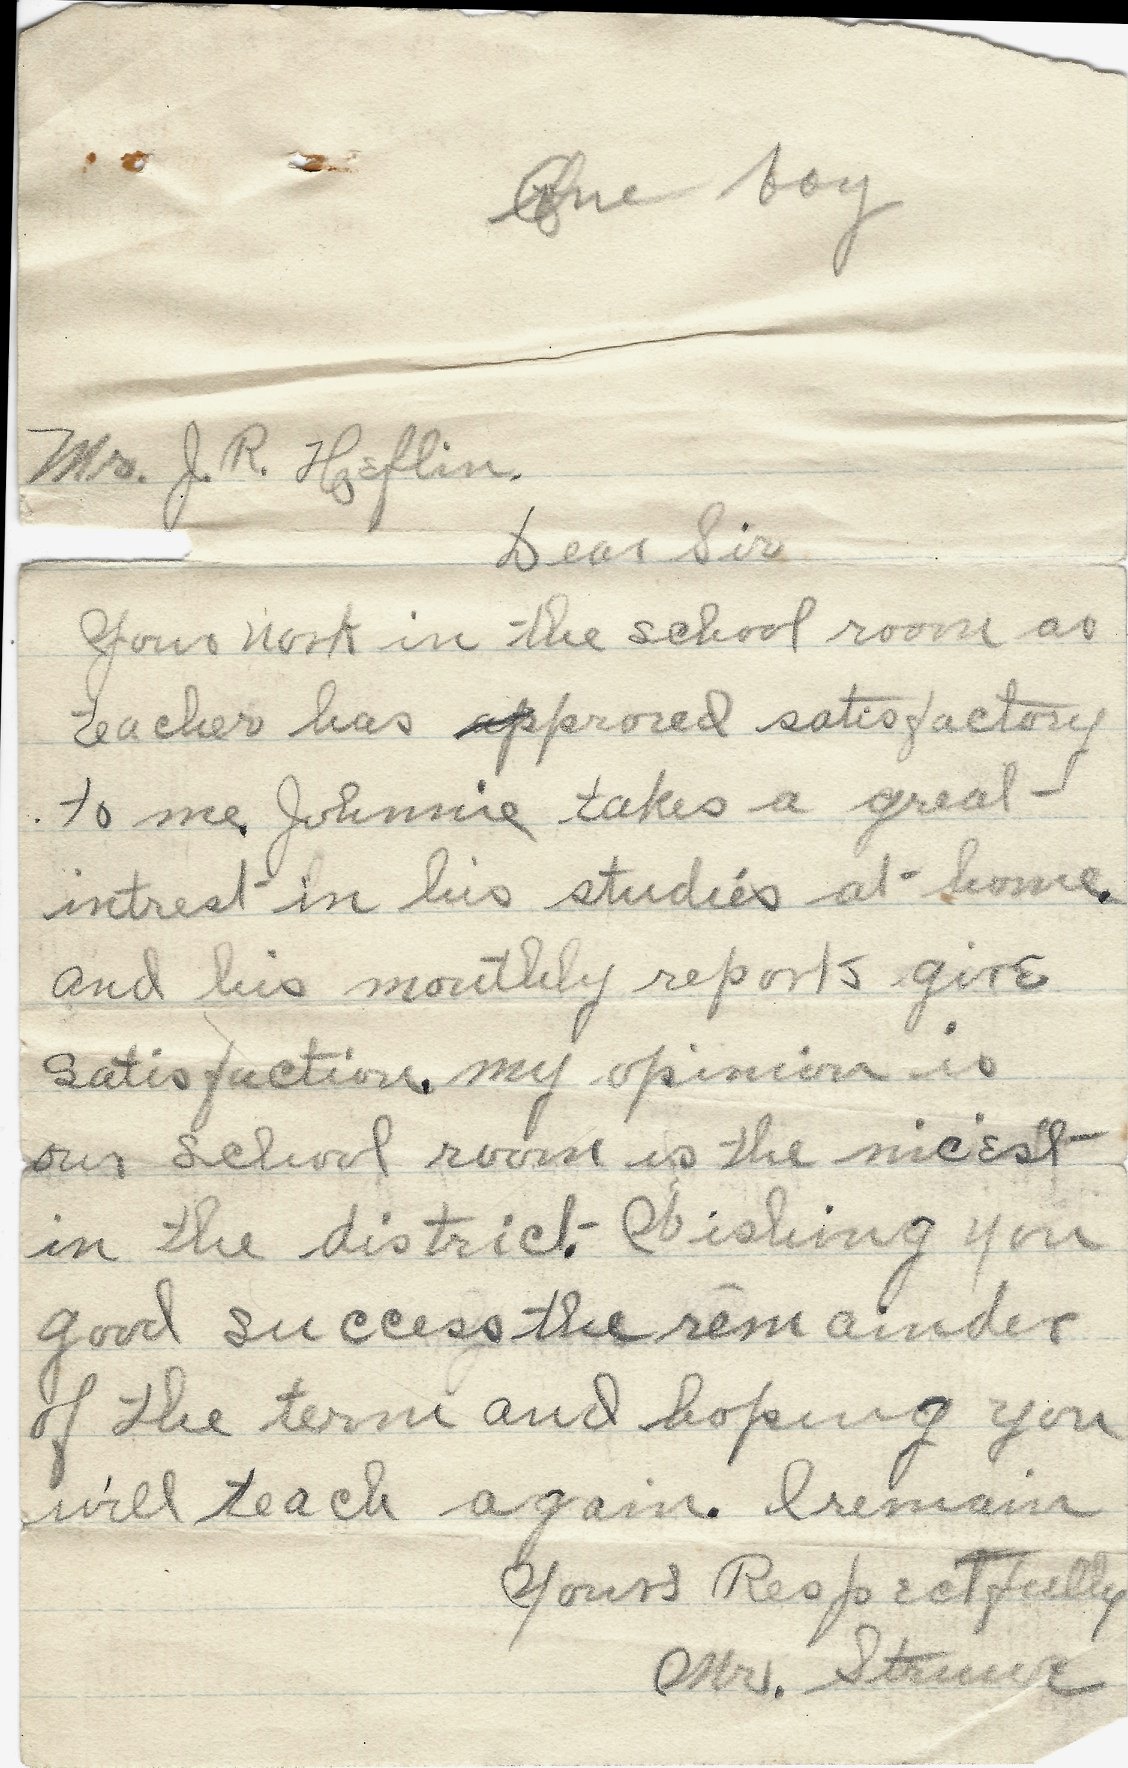 One boy
Mr. J. R. Heflin.
Dear Sir
Your work in the school room as
teacher has approved satisfactory
to me. Johnnie takes a great
intrest in his studies at home.
and his monthly reports give
satisfaction. my opinion is
our school room is the nicest
in the district. Wishing you
good success the remainder
of the term and hoping you
will teach again. I remain
Yours Respectfully
Mr. Struve